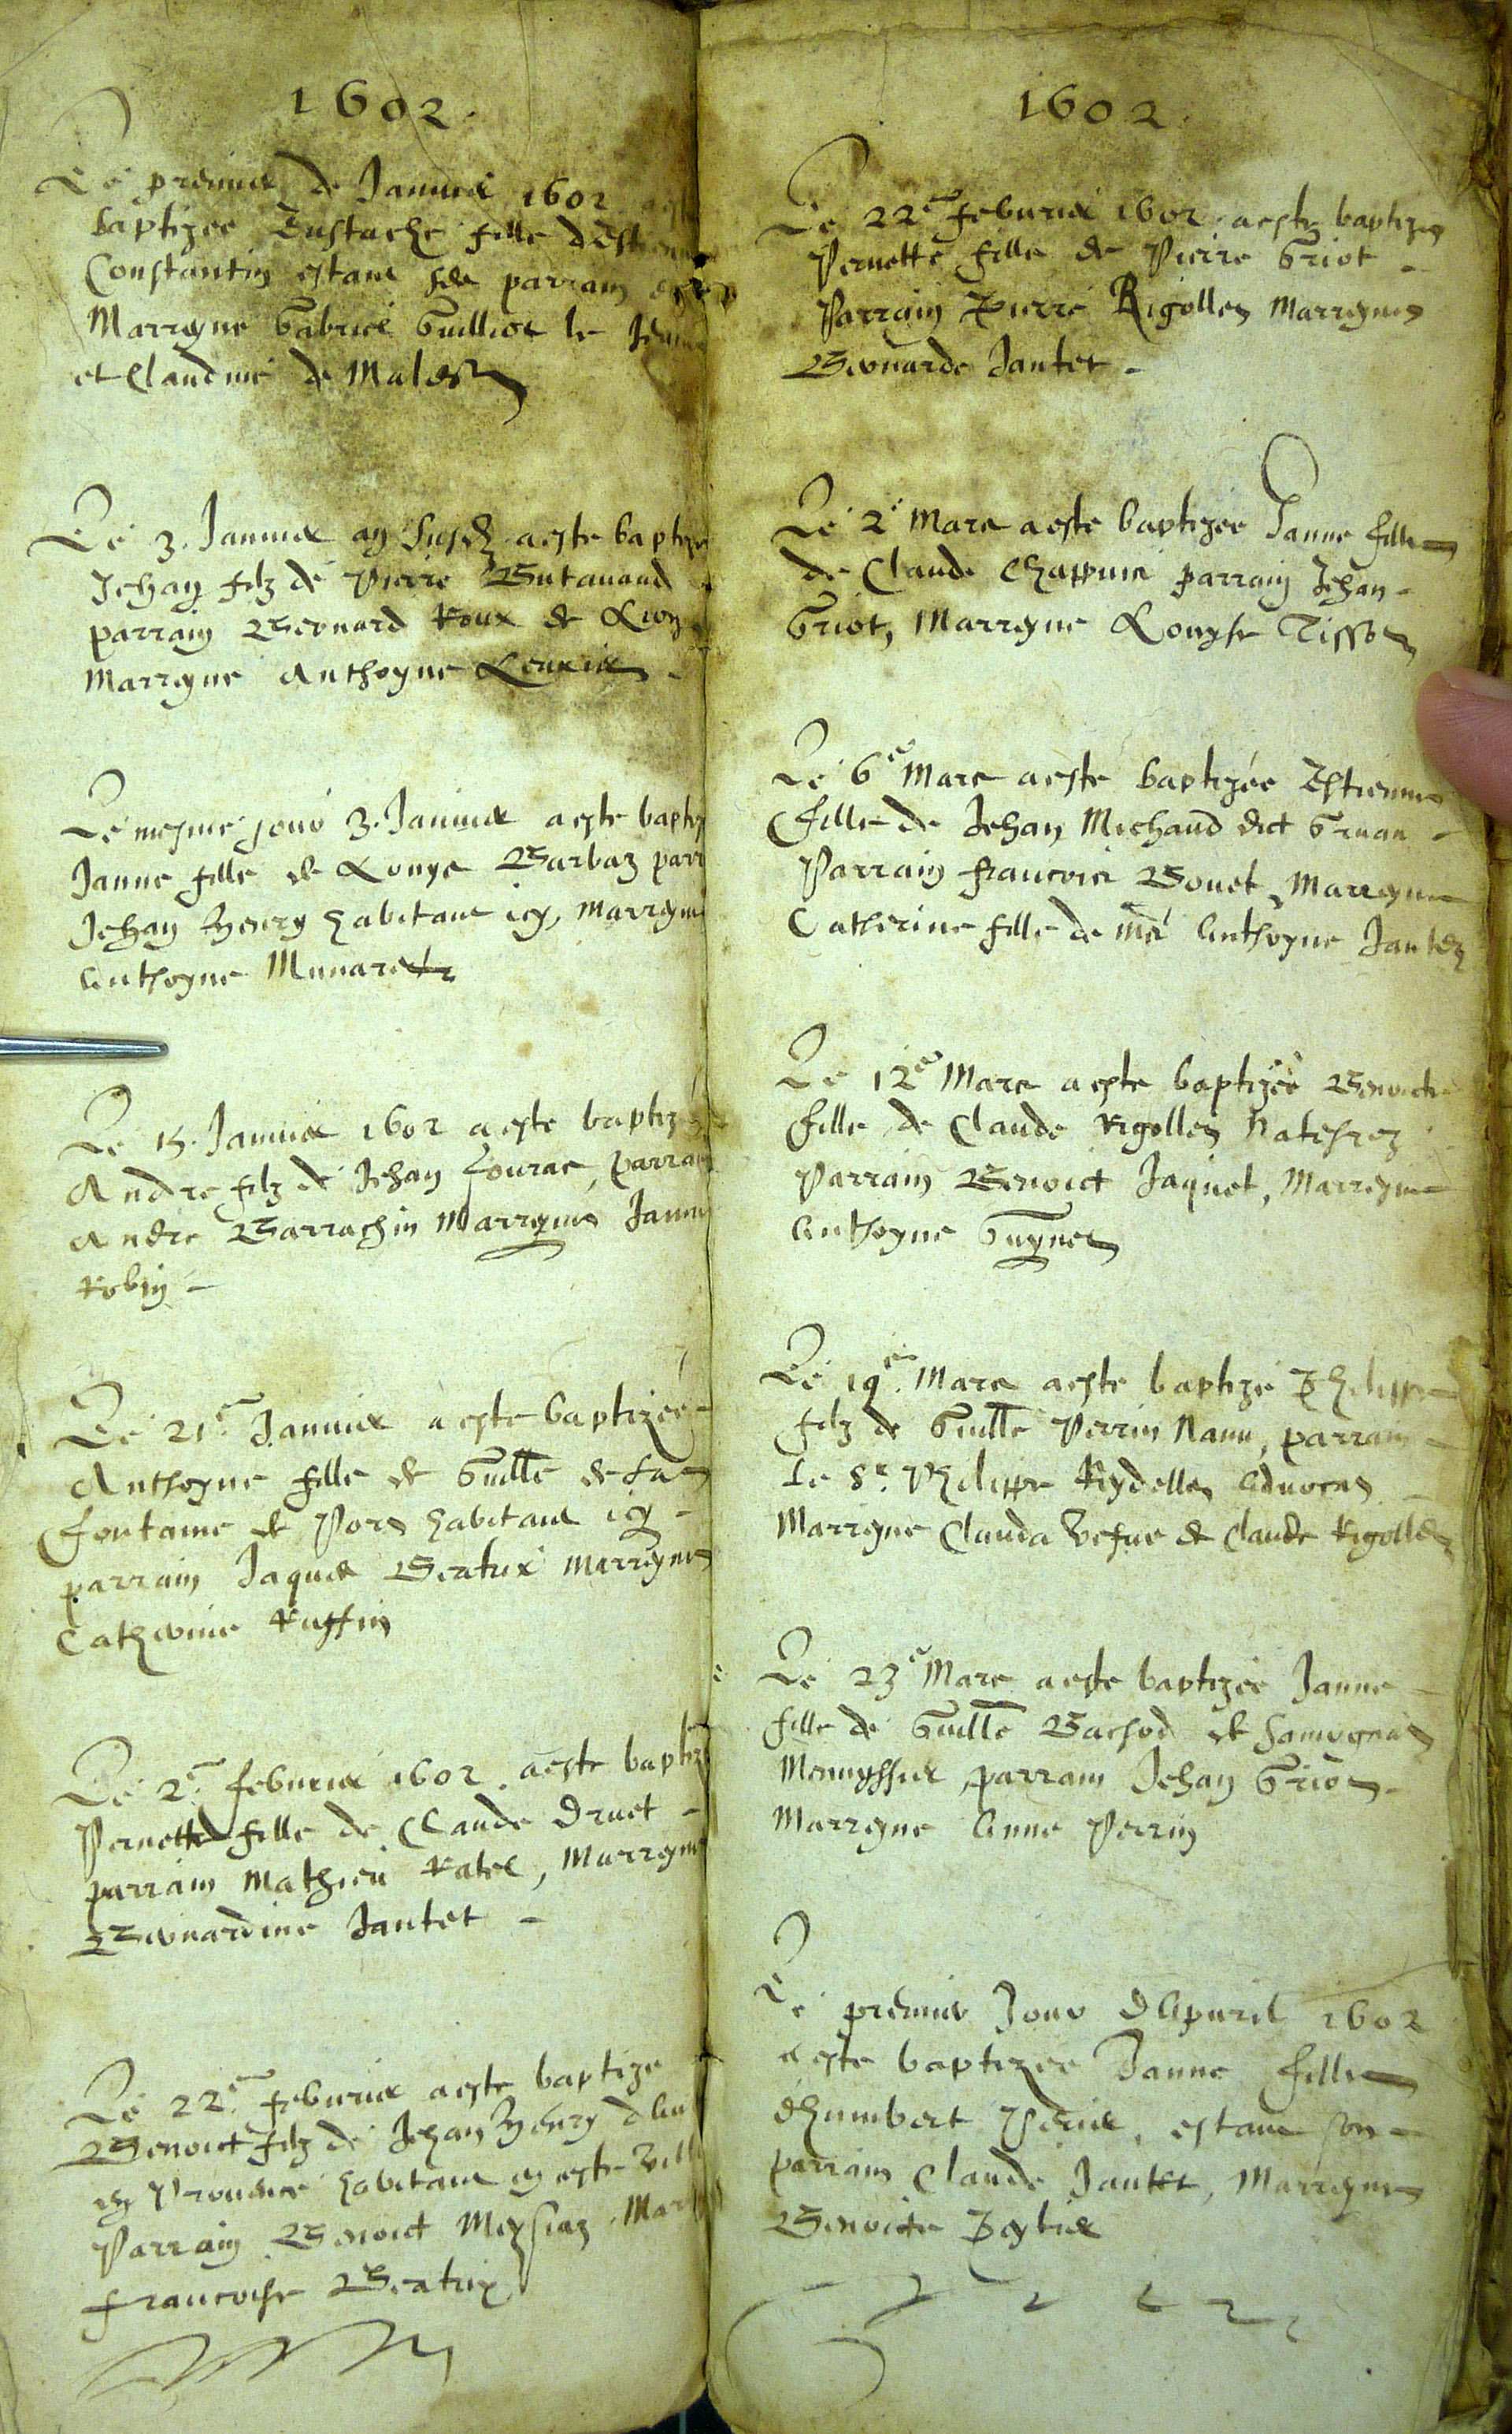 1602.
Le premier de Janvier 1602 a este
baptizee Eustache fille d'Estienne
Constantin estant son parrain et
Marreyne Gabriel Guilliot le Jeune
et Claudine de Malez
Le 3. Janvier an susd a este baptize
Jehan filz de Pierre Butavand
parrain Bernard Roux de Lion
Marreyne Anthoyne
Le mesme jour 3. Janvier a este baptizee
Janne fille de Louys Barbaz parr
Jehan Henry habitant icy, Marreyne
Anthoyne Munaret
Le 15. Janvier 1602 a este baptizé
Andre filz de Jehan Fourac, parrain
Andre Barrachin Marreyne Janne
Robin
Le 21e Janvier a este baptizée
Anthoyne fille de Guille de La
Fontaine de habitant icy
parrain Jaques Beatrix Marreyne
Catherine Ruffin
Le 2e Febvrier 1602. a este baptizé
Pernette fille de Claude Druet
parrain Mathieu Ratel, Marreyne
Bernardine Jantet
Le 22e Febvrier a este baptize
Benoict filz de Jehan Henry
en Provence habitant en ceste ville
Parrain Benoict Meysiaz Mar
Francoise Beatrix
1602.
Le 22e Febvrier 1602. a este baptizee
Pernette fille de Pierre Griot
Parrain Pierre Rigollet Marreyne
Bernarde Jantet
Le 2e Mars a este baptizée Janne fille
de Claude Chappuis parrain Jehan
Griot, Marreyne Louyse Tissot
Le 6e Mars a este baptizée Estienne
fille de Jehan Michaud dict Gruan
Parrain Francois Bonet, Marreyne
Catherine fille de me Anthoyne Jantet
Le 12e Mars a este baptizée Benoicte
fille de Claude Rigollet
Parrain Benoict Jaquet, Marreyne
Anthoyne Guynet
Le 19e. Mars a este baptizé Philippe
filz de Guille Perrin Nanu, parrain
Le Sr. Philippe Rydellet Advocat
Marreyne Clauda vefve de Claude Rigollet
Le 23e Mars a este baptizée Janne
fille de Guille Bachod de Samognat
Menuysier parrain Jehan Griot
Marreyne Anne Perrin
Le premier Jour d'Apvril 1602
a este baptizee Janne fille
d'Humbert Perier, estant son
parrain Claude Jantet, Marreyne
Benoicte